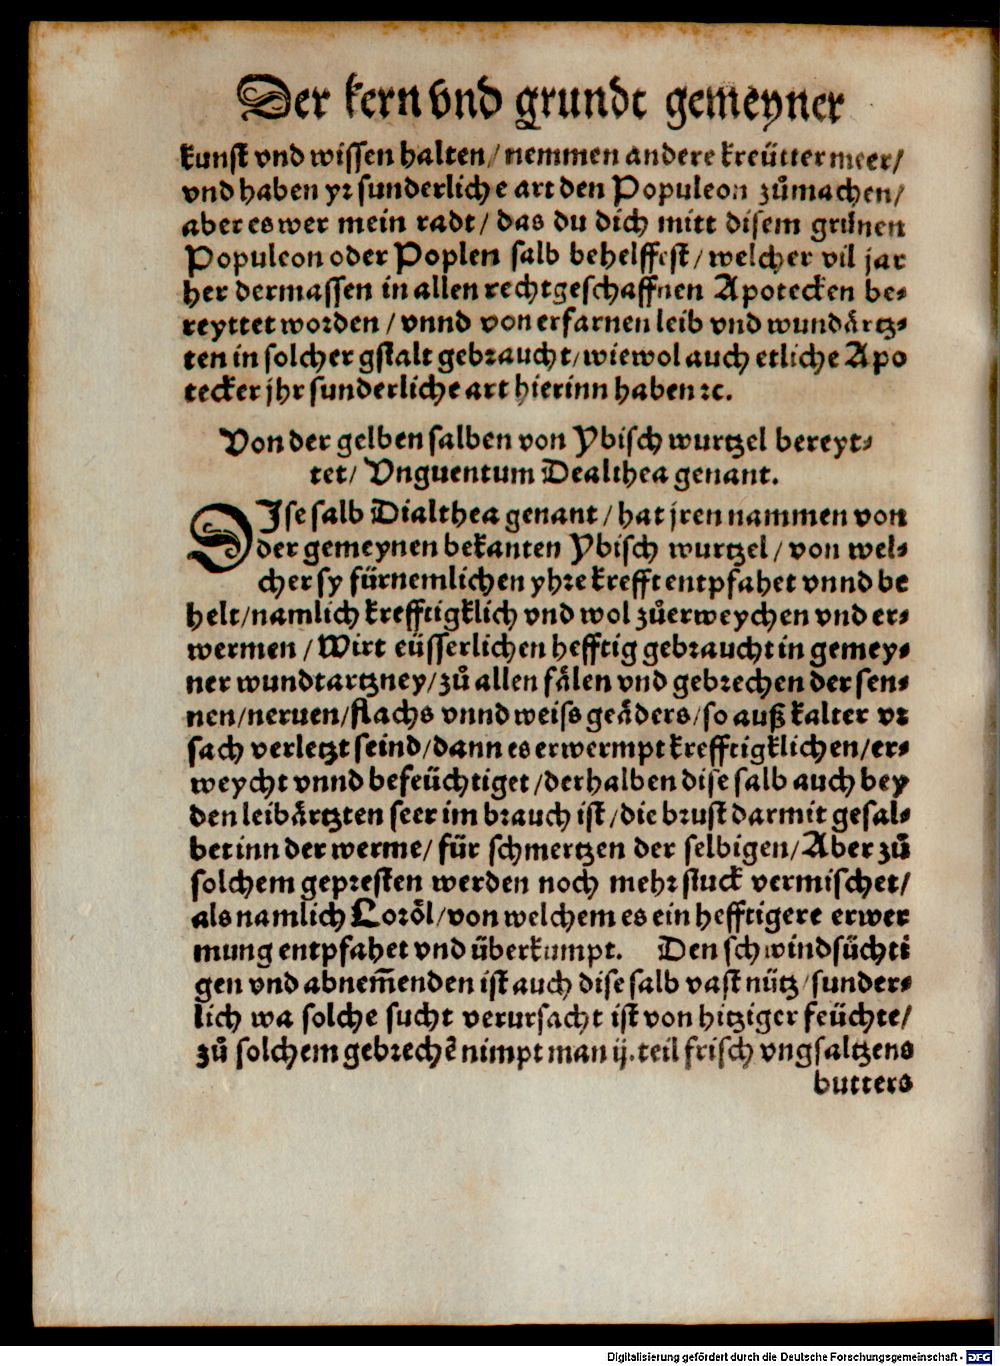 Der kern vnd grundt gemeyner
kunst vnd wissen halten/ nemmen andere kreütter meer/
vnd haben yr sunderliche art den Populeon zůmachen/
aber es wer mein radt/ das du dich mitt disem grünen
Populeon oder Poplen salb behelffest/ welcher vil jar
her dermassen in allen rechtgeschaffnen Apotecken be⸗
reyttet worden/ vnnd von erfarnen leib vnd wundärtz⸗
ten in solcher gstalt gebraucht/ wiewol auch etliche Apo
tecker jhr sunderliche art hierinn haben ꝛc.
Von der gelben salben von Ybisch wurtzel bereyt⸗
tet/ Vnguentum Dealthea genant.
DIse salb Dialthea genant/ hat jren nammen von
der gemeynen bekanten Ybisch wurtzel/ von wel⸗
cher sy fürnemlichen yhre krefft entpfahet vnnd be
helt/ namlich krefftigklich vnd wol zůerweychen vnd er⸗
wermen/ Wirt eüsserlichen hefftig gebraucht in gemey⸗
ner wundtartzney/ zů allen fälen vnd gebrechen der sen⸗
nen/ neruen/ flachs vnnd weiss geäders/ so auß kalter vr
sach verletzt seind/ dann es erwermpt krefftigklichen/ er⸗
weycht vnnd befeüchtiget/ derhalben dise salb auch bey
den leibärtzten seer im brauch ist/ die brust darmit gesal⸗
bet inn der werme/ für schmertzen der selbigen/ Aber zů
solchem gepresten werden noch mehr stuck vermischet/
als namlich Loröl/ von welchem es ein hefftigere erwer
mung entpfahet vnd überkumpt. Den schwindsüchti
gen vnd abnem̄enden ist auch dise salb vast nütz/ sunder⸗
lich wa solche sucht verursacht ist von hitziger feüchte/
zů solchem gebrechē nimpt man ij. teil frisch vngsaltzens
butters
Digitalisierung gefördert durch die Deutsche Forschungsgemeinschaft - DFG